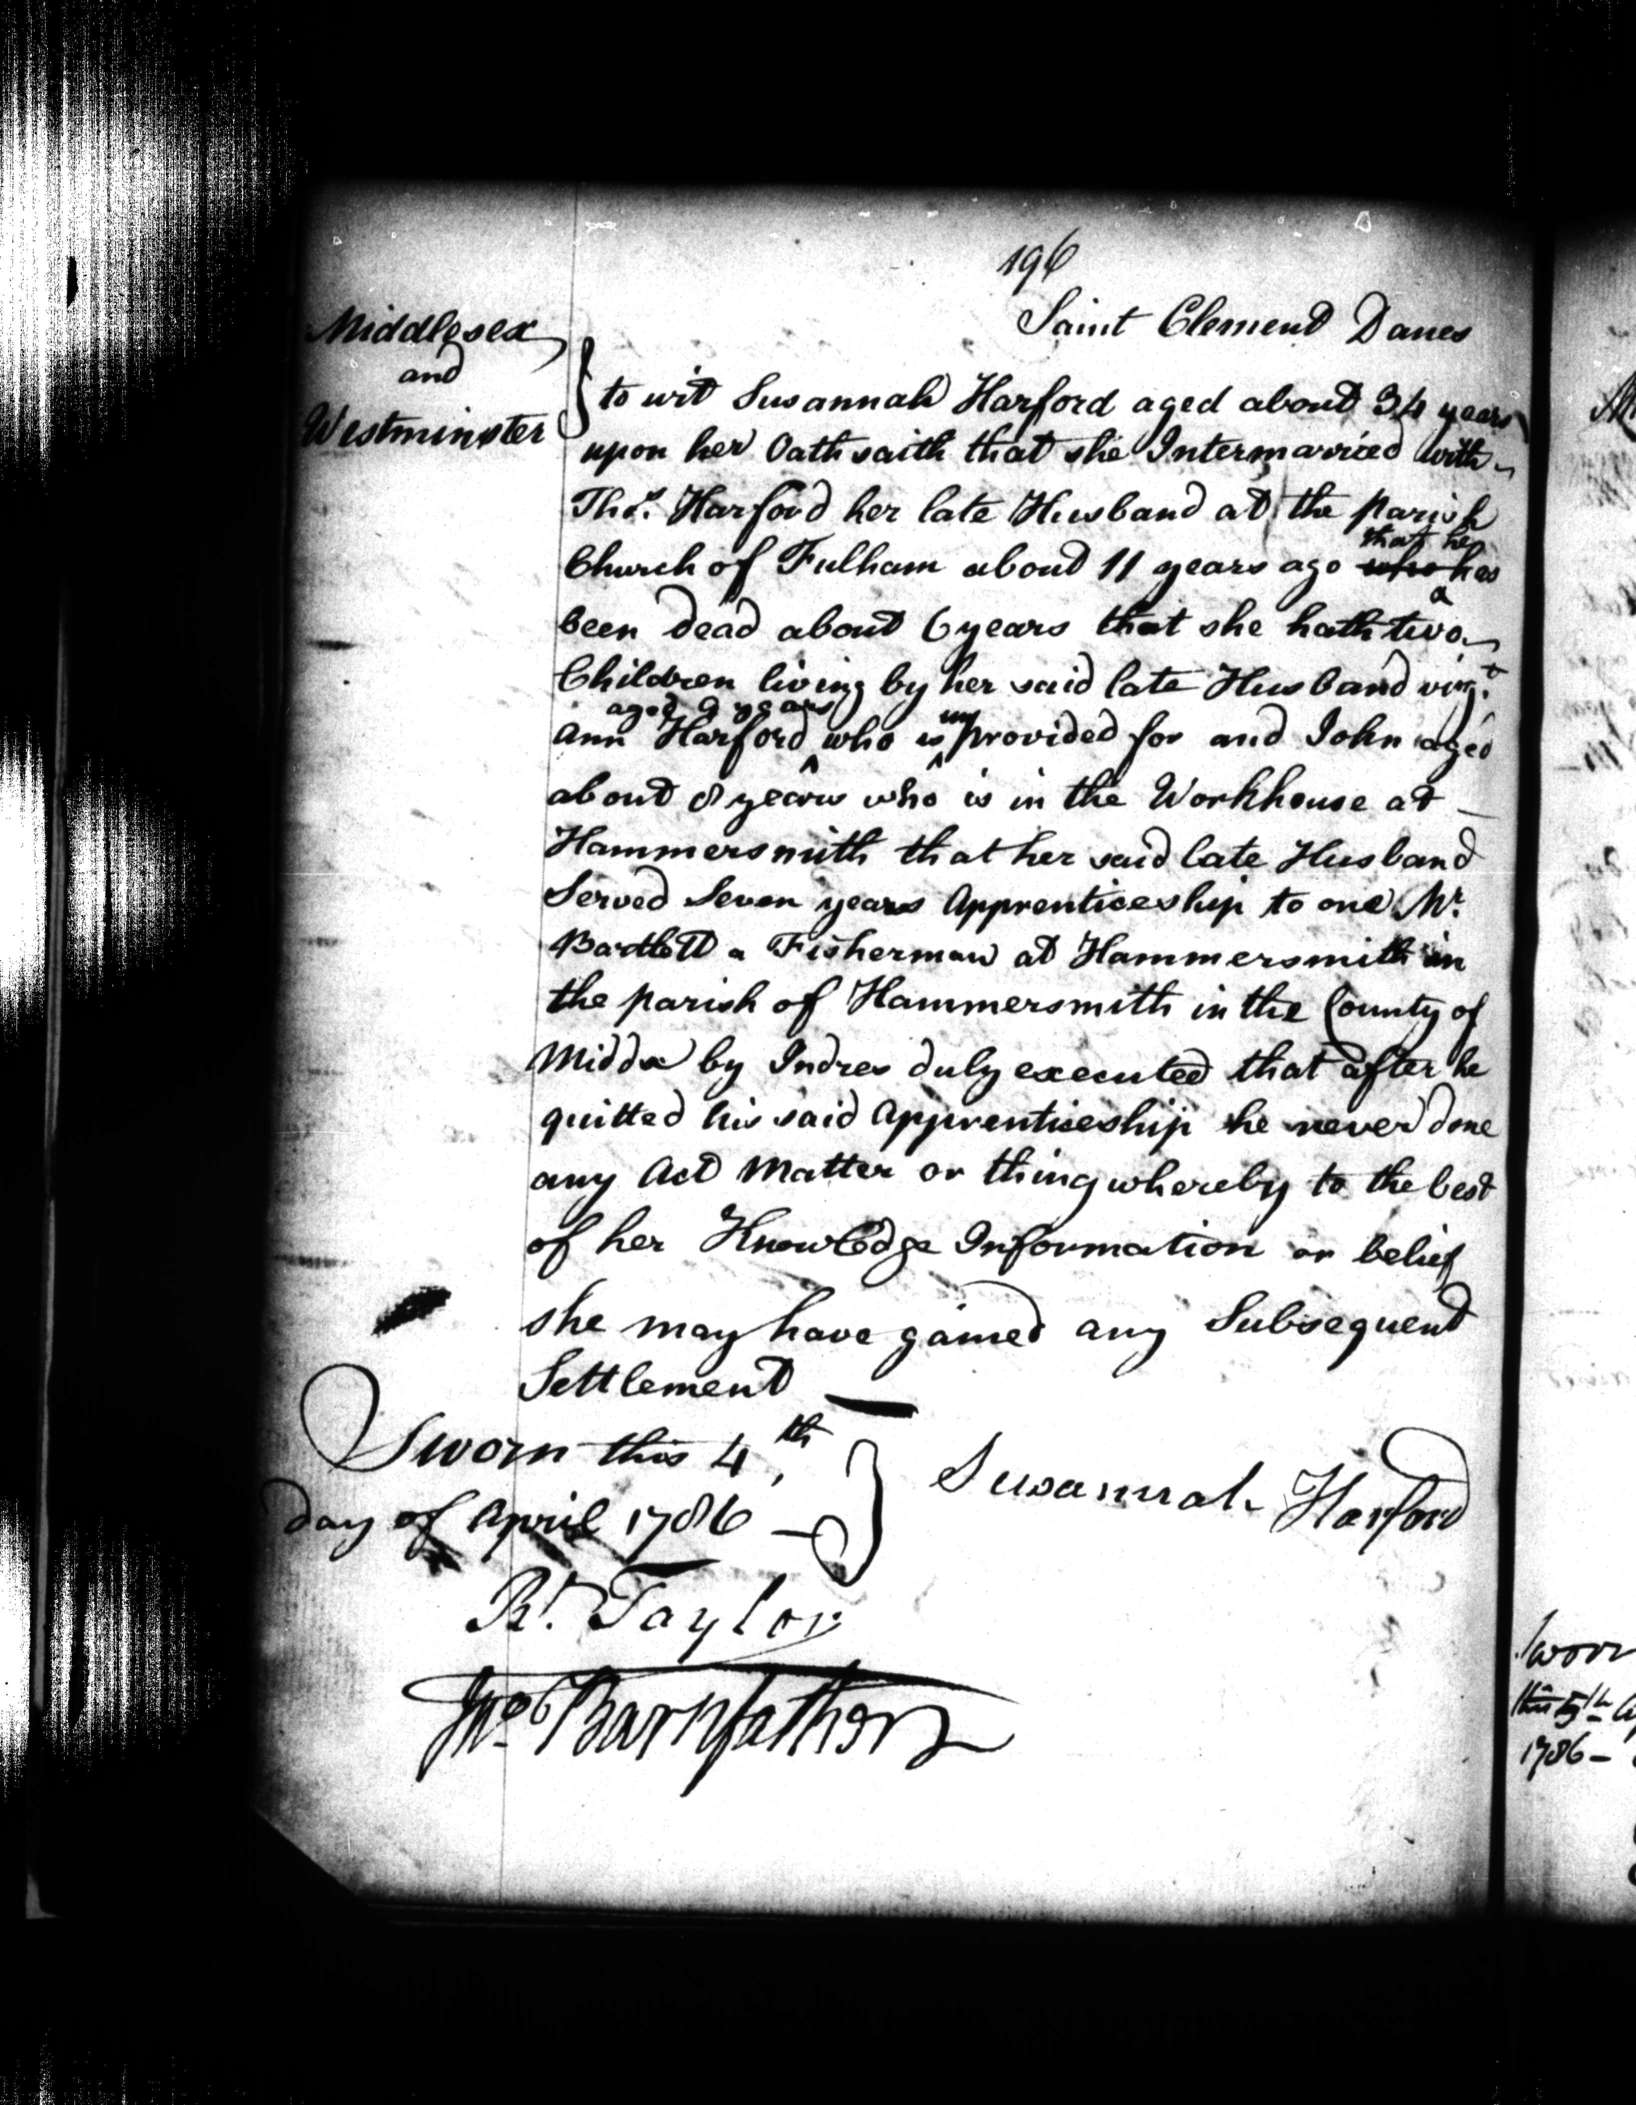 196
Saint Clement Danes
Middlesex
and
Westminster
to wit Susannah Harford aged about 34 years
upon her Oath saith that she Intermarried with
Thos. Harford her late Husband at the parish
that he
Church of Fulham about 11 years ago who has
been dead about 6 years that she hath two
Children living by her said late Husband vizt
aged 9 years un
Ann Harford who is provided for and John aged
about 8 years who is in the Workhouse at
Hammersmith that her said late Husband
Served Seven years Apprenticeship to one Mr.
Bartlett a Fisherman at Hammersmith in
the parish of Hammersmith in the County of
Middx by Indres duly executed that after he
quitted his said Apprenticeship he never done
any Act Matter or thing whereby to the best
of her Knowledge Information or belief
she may have gained any Subsequent
Settlement
Sworn this 4th
day of April 1786
Susannah Harford
Rt. Taylor
Jno Barnfather
Sworn
this 5th
1786